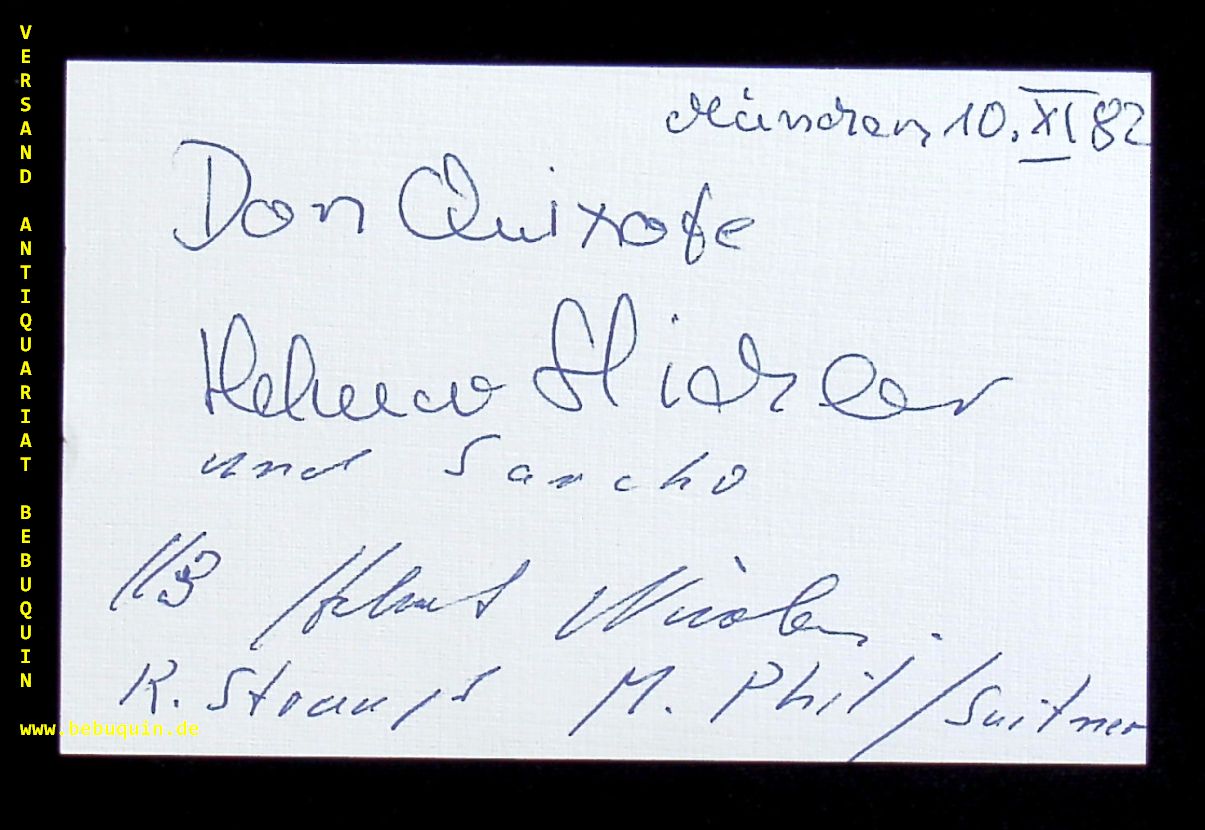 VERSAND ANTIQUARIAT BEBUQUIN
München 10. XI 82
Don Quixote
Helmar Stiehler
und Sancho
Helmut Nicolai.
R. Strauss M. Phil / Suitner
www.bebuquin.de